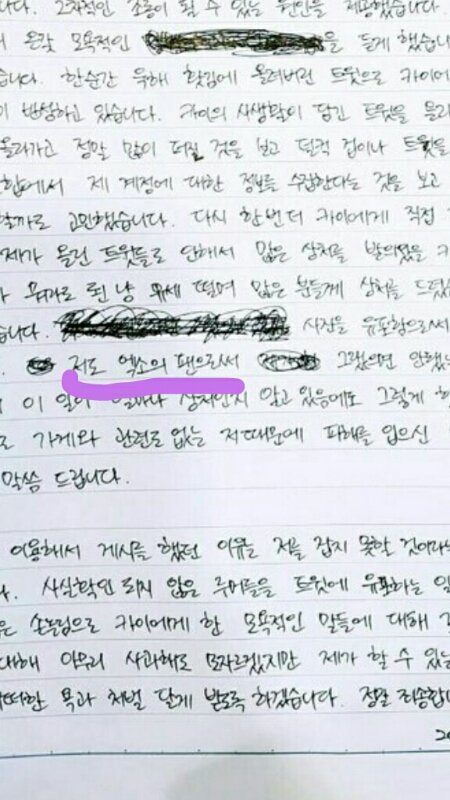 다. 2차적인 조롱이 될 수 있는 원인을 제공했습니다.
온갖 모욕적인 을 듣게 했습니
습니다. 한순간 욱해 홧김에 올려버린 트윗으로 카이에
이 반성하고 있습니다. 카이의 사생활이 담긴 트윗을 올리
올라가고 정말 많이 퍼질 것을 보고 덜컥 겁이나 트윗을
연합에서 제 계정에 대한 정보를 수집한다는 것을 보고
할까로 고민했습니다. 다시 한번더 카이에게 직접
제가 올린 트윗들로 인해서 많은 상처를 받으셨을 카
가 뭐라도 된 냥 유세 떨며 많은 분들께 상처를 드렸
습니다. 사진을 유포함으로써
저도 엑소의 팬으로써 그랬으면 안됐
이 일이 얼마나 상처인지 알고 있음에도 그렇게 행
로 가게와 관련도 없는 저때문에 피해를 입으신
말씀 드립니다.
이용해서 게시를 했던 이유는 저를 잡지 못할 것이라
다. 사실확인 되지 않은 루머들을 트윗에 유포하는 일
은 손놀림으로 카이에게 한 모욕적인 말들에 대해
대해 아무리 사과해도 모자르겠지만 제가 할 수 있는
떠한 욕과 처벌 달게 받도록 하겠습니다. 정말 죄송합니
20